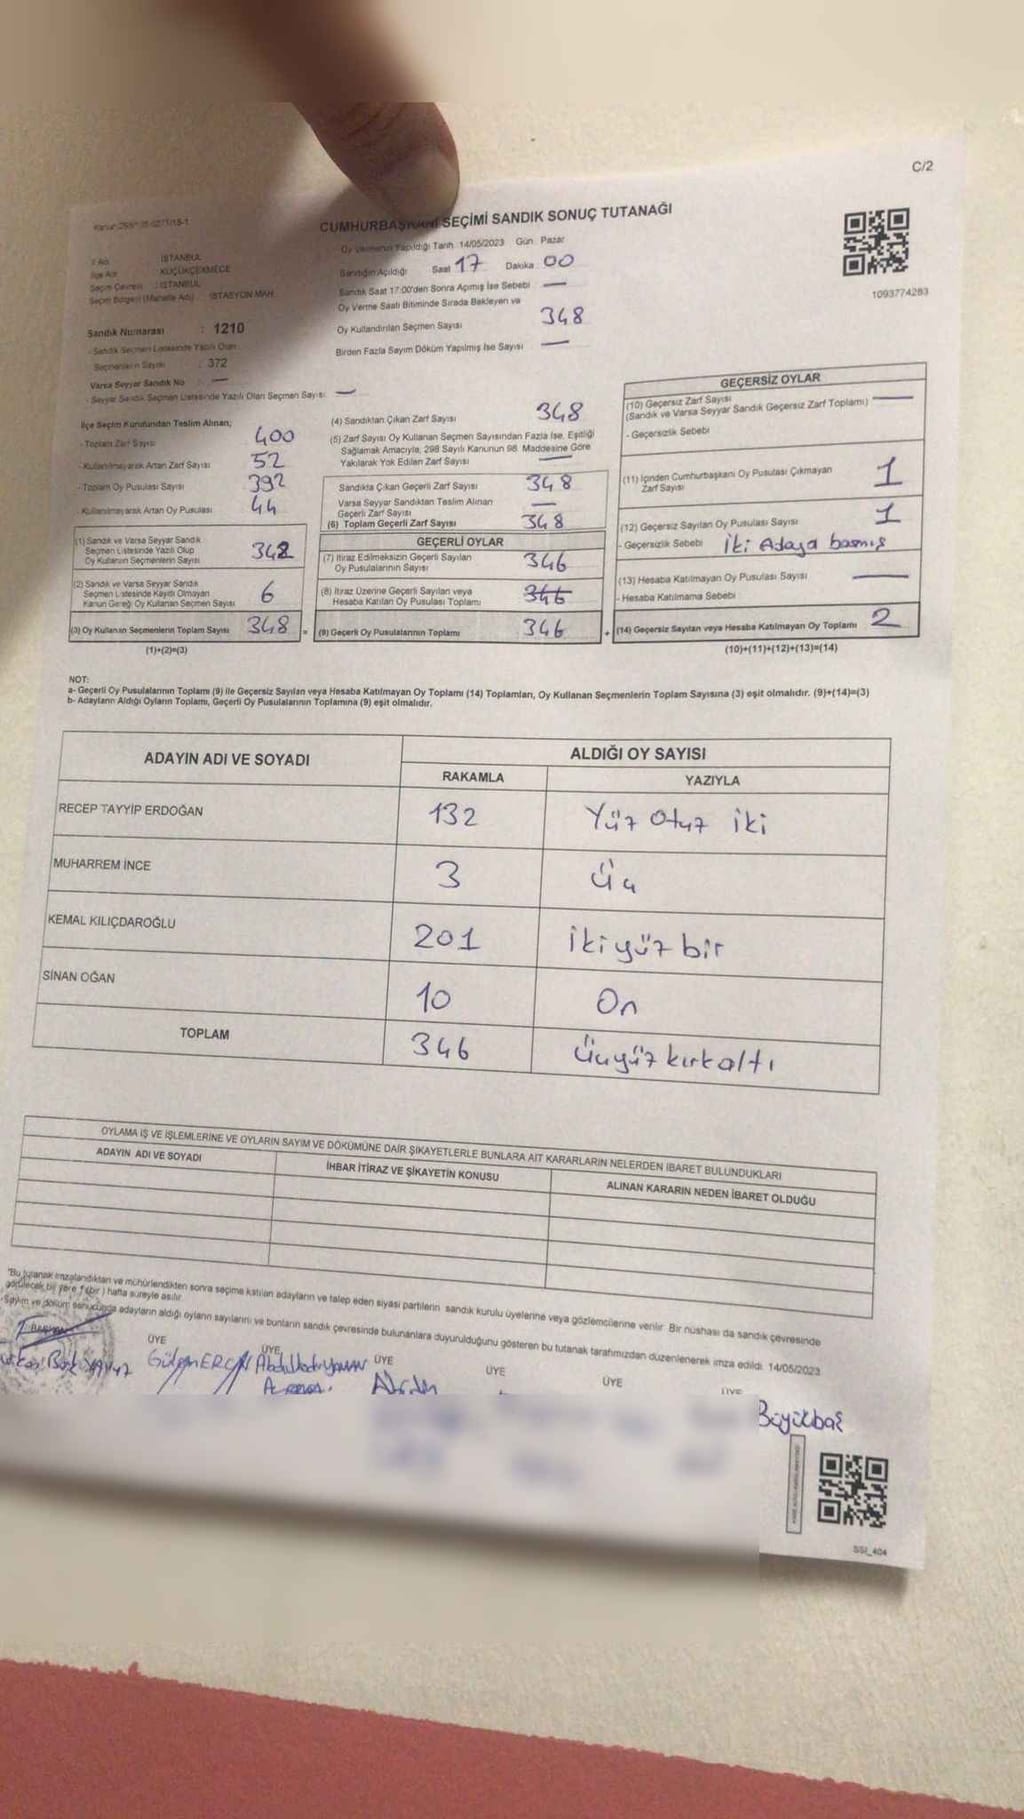 C/2
CUMHURBAŞKANI SEÇİMİ SANDIK SONUÇ TUTANAĞI
1093774283
İl Adı : İSTANBUL
İlçe Adı : KÜÇÜKÇEKMECE
Seçim Çevresi : İSTANBUL
Seçim Bölgesi (Mahalle Adı) : İSTASYON MAH.
Sandık Numarası : 1210
- Sandık Seçmen Listesinde Yazılı Olan
Seçmenlerin Sayısı : 372
Varsa Seyyar Sandık No : —
- Seyyar Sandık Seçmen Listesinde Yazılı Olan Seçmen Sayısı : —
Oy Vermenin Yapıldığı Tarih 14/05/2023 Gün Pazar
Sandığın Açıldığı Saat 17 Dakika 00
Sandık Saat 17:00'den Sonra Açılmış İse Sebebi —
Oy Verme Saati Bitiminde Sırada Bekleyen ve
Oy Kullandırılan Seçmen Sayısı 348
Birden Fazla Sayım Döküm Yapılmış İse Sayısı —
İlçe Seçim Kurulundan Teslim Alınan;
- Toplam Zarf Sayısı 400
- Kullanılmayarak Artan Zarf Sayısı 52
- Toplam Oy Pusulası Sayısı 392
- Kullanılmayarak Artan Oy Pusulası 44
(1) Sandık ve Varsa Seyyar Sandık
Seçmen Listesinde Yazılı Olup
Oy Kullanan Seçmenlerin Sayısı 342
(2) Sandık ve Varsa Seyyar Sandık
Seçmen Listesinde Kayıtlı Olmayan
Kanun Gereği Oy Kullanan Seçmen Sayısı 6
(3) Oy Kullanan Seçmenlerin Toplam Sayısı 348
(1)+(2)=(3)
(4) Sandıktan Çıkan Zarf Sayısı 348
(5) Zarf Sayısı Oy Kullanan Seçmen Sayısından Fazla İse, Eşitliği
Sağlamak Amacıyla, 298 Sayılı Kanunun 98. Maddesine Göre
Yakılarak Yok Edilen Zarf Sayısı —
Sandıkta Çıkan Geçerli Zarf Sayısı 348
Varsa Seyyar Sandıktan Teslim Alınan
Geçerli Zarf Sayısı —
(6) Toplam Geçerli Zarf Sayısı 348
GEÇERLİ OYLAR
(7) İtiraz Edilmeksizin Geçerli Sayılan
Oy Pusulalarının Sayısı 346
(8) İtiraz Üzerine Geçerli Sayılan veya
Hesaba Katılan Oy Pusulası Toplamı 346
(9) Geçerli Oy Pusulalarının Toplamı 346
GEÇERSİZ OYLAR
(10) Geçersiz Zarf Sayısı —
(Sandık ve Varsa Seyyar Sandık Geçersiz Zarf Toplamı)
- Geçersizlik Sebebi
(11) İçinden Cumhurbaşkanı Oy Pusulası Çıkmayan
Zarf Sayısı 1
(12) Geçersiz Sayılan Oy Pusulası Sayısı 1
- Geçersizlik Sebebi İki Adaya basmış
(13) Hesaba Katılmayan Oy Pusulası Sayısı —
- Hesaba Katılmama Sebebi
(14) Geçersiz Sayılan veya Hesaba Katılmayan Oy Toplamı 2
(10)+(11)+(12)+(13)=(14)
NOT:
a- Geçerli Oy Pusulalarının Toplamı (9) ile Geçersiz Sayılan veya Hesaba Katılmayan Oy Toplamı (14) Toplamları, Oy Kullanan Seçmenlerin Toplam Sayısına (3) eşit olmalıdır. (9)+(14)=(3)
b- Adayların Aldığı Oyların Toplamı, Geçerli Oy Pusulalarının Toplamına (9) eşit olmalıdır.
ADAYIN ADI VE SOYADI
ALDIĞI OY SAYISI
RAKAMLA YAZIYLA
RECEP TAYYİP ERDOĞAN 132 Yüz Otuz iki
MUHARREM İNCE 3 Üç
KEMAL KILIÇDAROĞLU 201 İki yüz bir
SİNAN OĞAN 10 On
TOPLAM 346 Üçyüz kırk altı
OYLAMA İŞ VE İŞLEMLERİNE VE OYLARIN SAYIM VE DÖKÜMÜNE DAİR ŞİKAYETLERLE BUNLARA AİT KARARLARIN NELERDEN İBARET BULUNDUKLARI
ADAYIN ADI VE SOYADI İHBAR İTİRAZ VE ŞİKAYETİN KONUSU ALINAN KARARIN NEDEN İBARET OLDUĞU
*Bu tutanak imzalandıktan ve mühürlendikten sonra seçime katılan adayların ve talep eden siyasi partilerin sandık kurulu üyelerine veya gözlemcilerine verilir. Bir nüshası da sandık çevresinde
görülecek bir yere 1 (bir) hafta süreyle asılır.
-Sayım ve döküm sonucunda adayların aldığı oyların sayılarını ve bunların sandık çevresinde bulunanlara duyurulduğunu gösteren bu tutanak tarafımızdan düzenlenerek imza edildi. 14/05/2023
ÜYE ÜYE ÜYE ÜYE ÜYE ÜYE
Büyükbaş
SSI_404